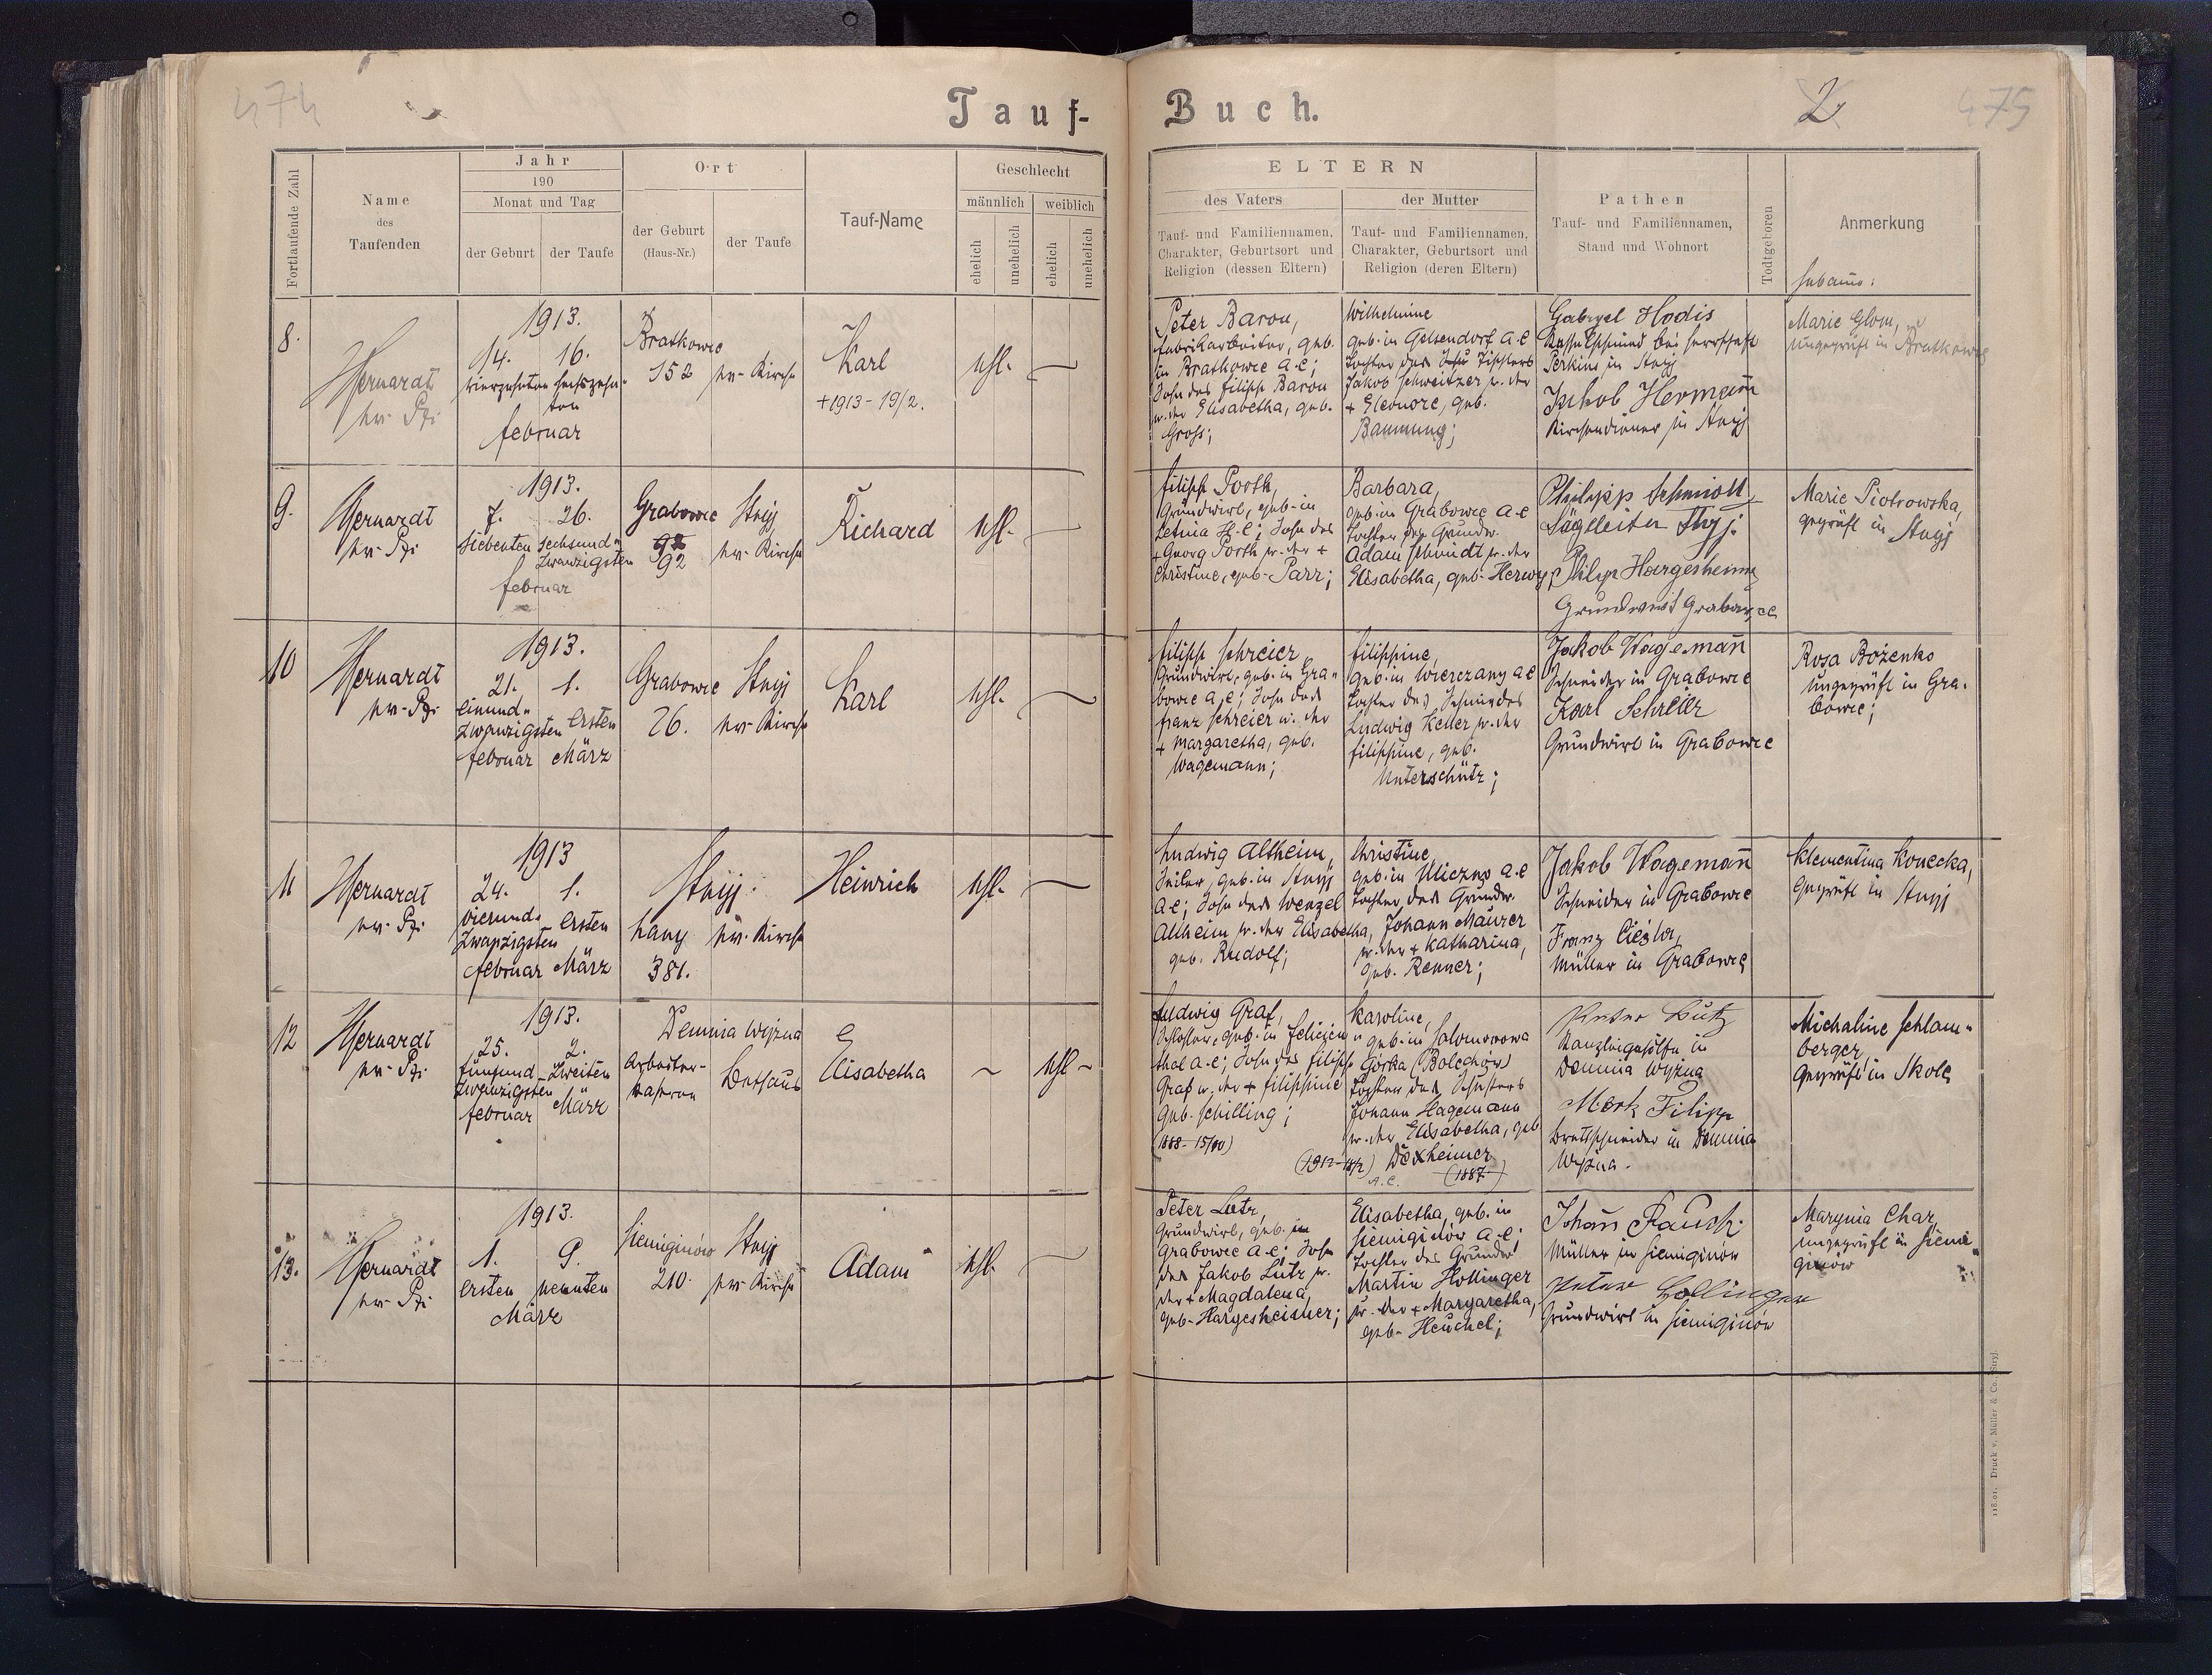 474
Tauf-
Buch.
2
475
Fortlaufende Zahl
Name
des
Taufenden
Jahr
190
Monat und Tag
der Geburt
der Taufe
Ort
der Geburt
(Haus-Nr.)
der Taufe
Tauf-Name
Geschlecht
männlich
weiblich
ehelich
unehelich
ehelich
unehelich
ELTERN
des Vaters
Tauf- und Familiennamen,
Charakter, Geburtsort und
Religion (dessen Eltern)
der Mutter
Tauf- und Familiennamen,
Charakter, Geburtsort und
Religion (deren Eltern)
Pathen
Tauf- und Familiennamen,
Stand und Wohnort
Todtgeboren
Anmerkung
Hebamme:
8.
1913.
14. 16.
vierzehnten sechszehn-
ten
Februar
Bratkowce
152
ev. Kirche
Karl
+1913-19/2.
ehl.
Peter Baron,
Fabrikarbeiter, geb.
in Bratkowce A.C;
Sohn des Filipp Baron
u. der Elisabetha, geb.
Gross;
Wilhelmine
geb. in Gelsendorf A.C
Tochter des Tischlers
Jakob Schweitzer u. der
+ Eleonore, geb.
Bamung;
Gabryel Hodis
Kesselschmied bei Herrschaft
Perkins in Stryj
Jakob Hermann
Kirchendiener in Stryj
Marie Glom,
ungeprüft in Bratkowce
9.
1913.
7. 26.
siebenten sechsund-
zwanzigsten
Februar
Grabowce
92
Stryj
ev. Kirche
Richard
ehl.
Filipp Pooth,
Grundwirt, geb. in
Letnia H.C; Sohn des
+ Georg Porth u. der +
Christine, geb. Parr;
Barbara,
geb. in Grabowce A.C
Tochter des Grundw.
Adam Schmidt u. der
Elisabetha, geb. Herwy;
Philipp Schmidt
Sägeleiter Stryj.
Philip Hargesheimer
Grundwirt Grabowce
Marie Piotrowska,
geprüft in Stryj
10
1913.
21. 1.
einund-
zwanzigsten ersten
Februar März
Grabowce
26.
Stryj
ev. Kirche
Karl
ehl.
Filipp Schreier
Grundwirt, geb. in Gra-
bowce A.C; Sohn des
Franz Schreier u. der
+ Margaretha, geb.
Wagemann;
Filippine,
geb. in Wierczany A.C
Tochter des Schmiedes
Ludwig Keller u. der
Filippine, geb.
Unterschütz;
Jakob Wagemann
Schneider in Grabowce
Karl Schreier
Grundwirt in Grabowce
Rosa Bożenko
ungeprüft in Gra-
bowce;
11
1913
24. 1.
vierund- ersten
zwanzigsten
Februar März
Stryj.
Lany
381.
ev. Kirche
Heinrich
ehl.
Ludwig Altheim,
Seiler, geb. in Stryj
A.C; Sohn des Wenzel
Altheim u. der Elisabetha,
geb. Rudolf;
Christine,
geb. in Uliczno A.C
Tochter des Grundw.
Johann Maurer
u. der + Katharina,
geb. Renner;
Jakob Wagemann
Schneider in Grabowce
Franz Cieśla,
Müller in Grabowce
Klementina Konecka,
geprüft in Stryj
12
1913.
25. 2.
fünfund- zweiten
zwanzigsten
Februar März
Demnia Wyżna
Arbeiter-
kasern
Bethaus
Elisabetha
ehl.
Ludwig Graf,
Schlosser, geb. in Felizien-
thal A.C; Sohn des Filipp
Graf u. der + Filippine
geb. Schilling;
Karoline,
geb. in Salomonowa
Górka (Bolechów)
Tochter des Schusters
Johann Hagemann
u. der Elisabetha, geb
Dexheimer
A.C.
(1887)
Peter Butz
Kanzleigehilfe in
Demnia Wyżna
Mock Filipp
Brettschneider in Demnia
Wyżna.
Michaline Schlam-
berger,
geprüft in Skole
13.
1913.
1. 9.
ersten neunten
März
Siemiginów
210.
Stryj
ev. Kirche
Adam
ehl.
Peter Lutz,
Grundwirt, geb. in
Grabowce A.C; Sohn
des Jakob Lutz u.
der + Magdalena,
geb. Hargesheimer;
Elisabetha, geb. in
Siemiginów A.C;
Tochter des Grundw
Martin Hollinger
u. der + Margaretha,
geb. Heuchel;
Johann Rausch
Müller in Siemiginów
Peter Hollinger
Grundwirt in Siemiginów
Marynia Char,
ungeprüft in Siemi-
ginów
118.01. Druck v. Müller & Co. Stryj.